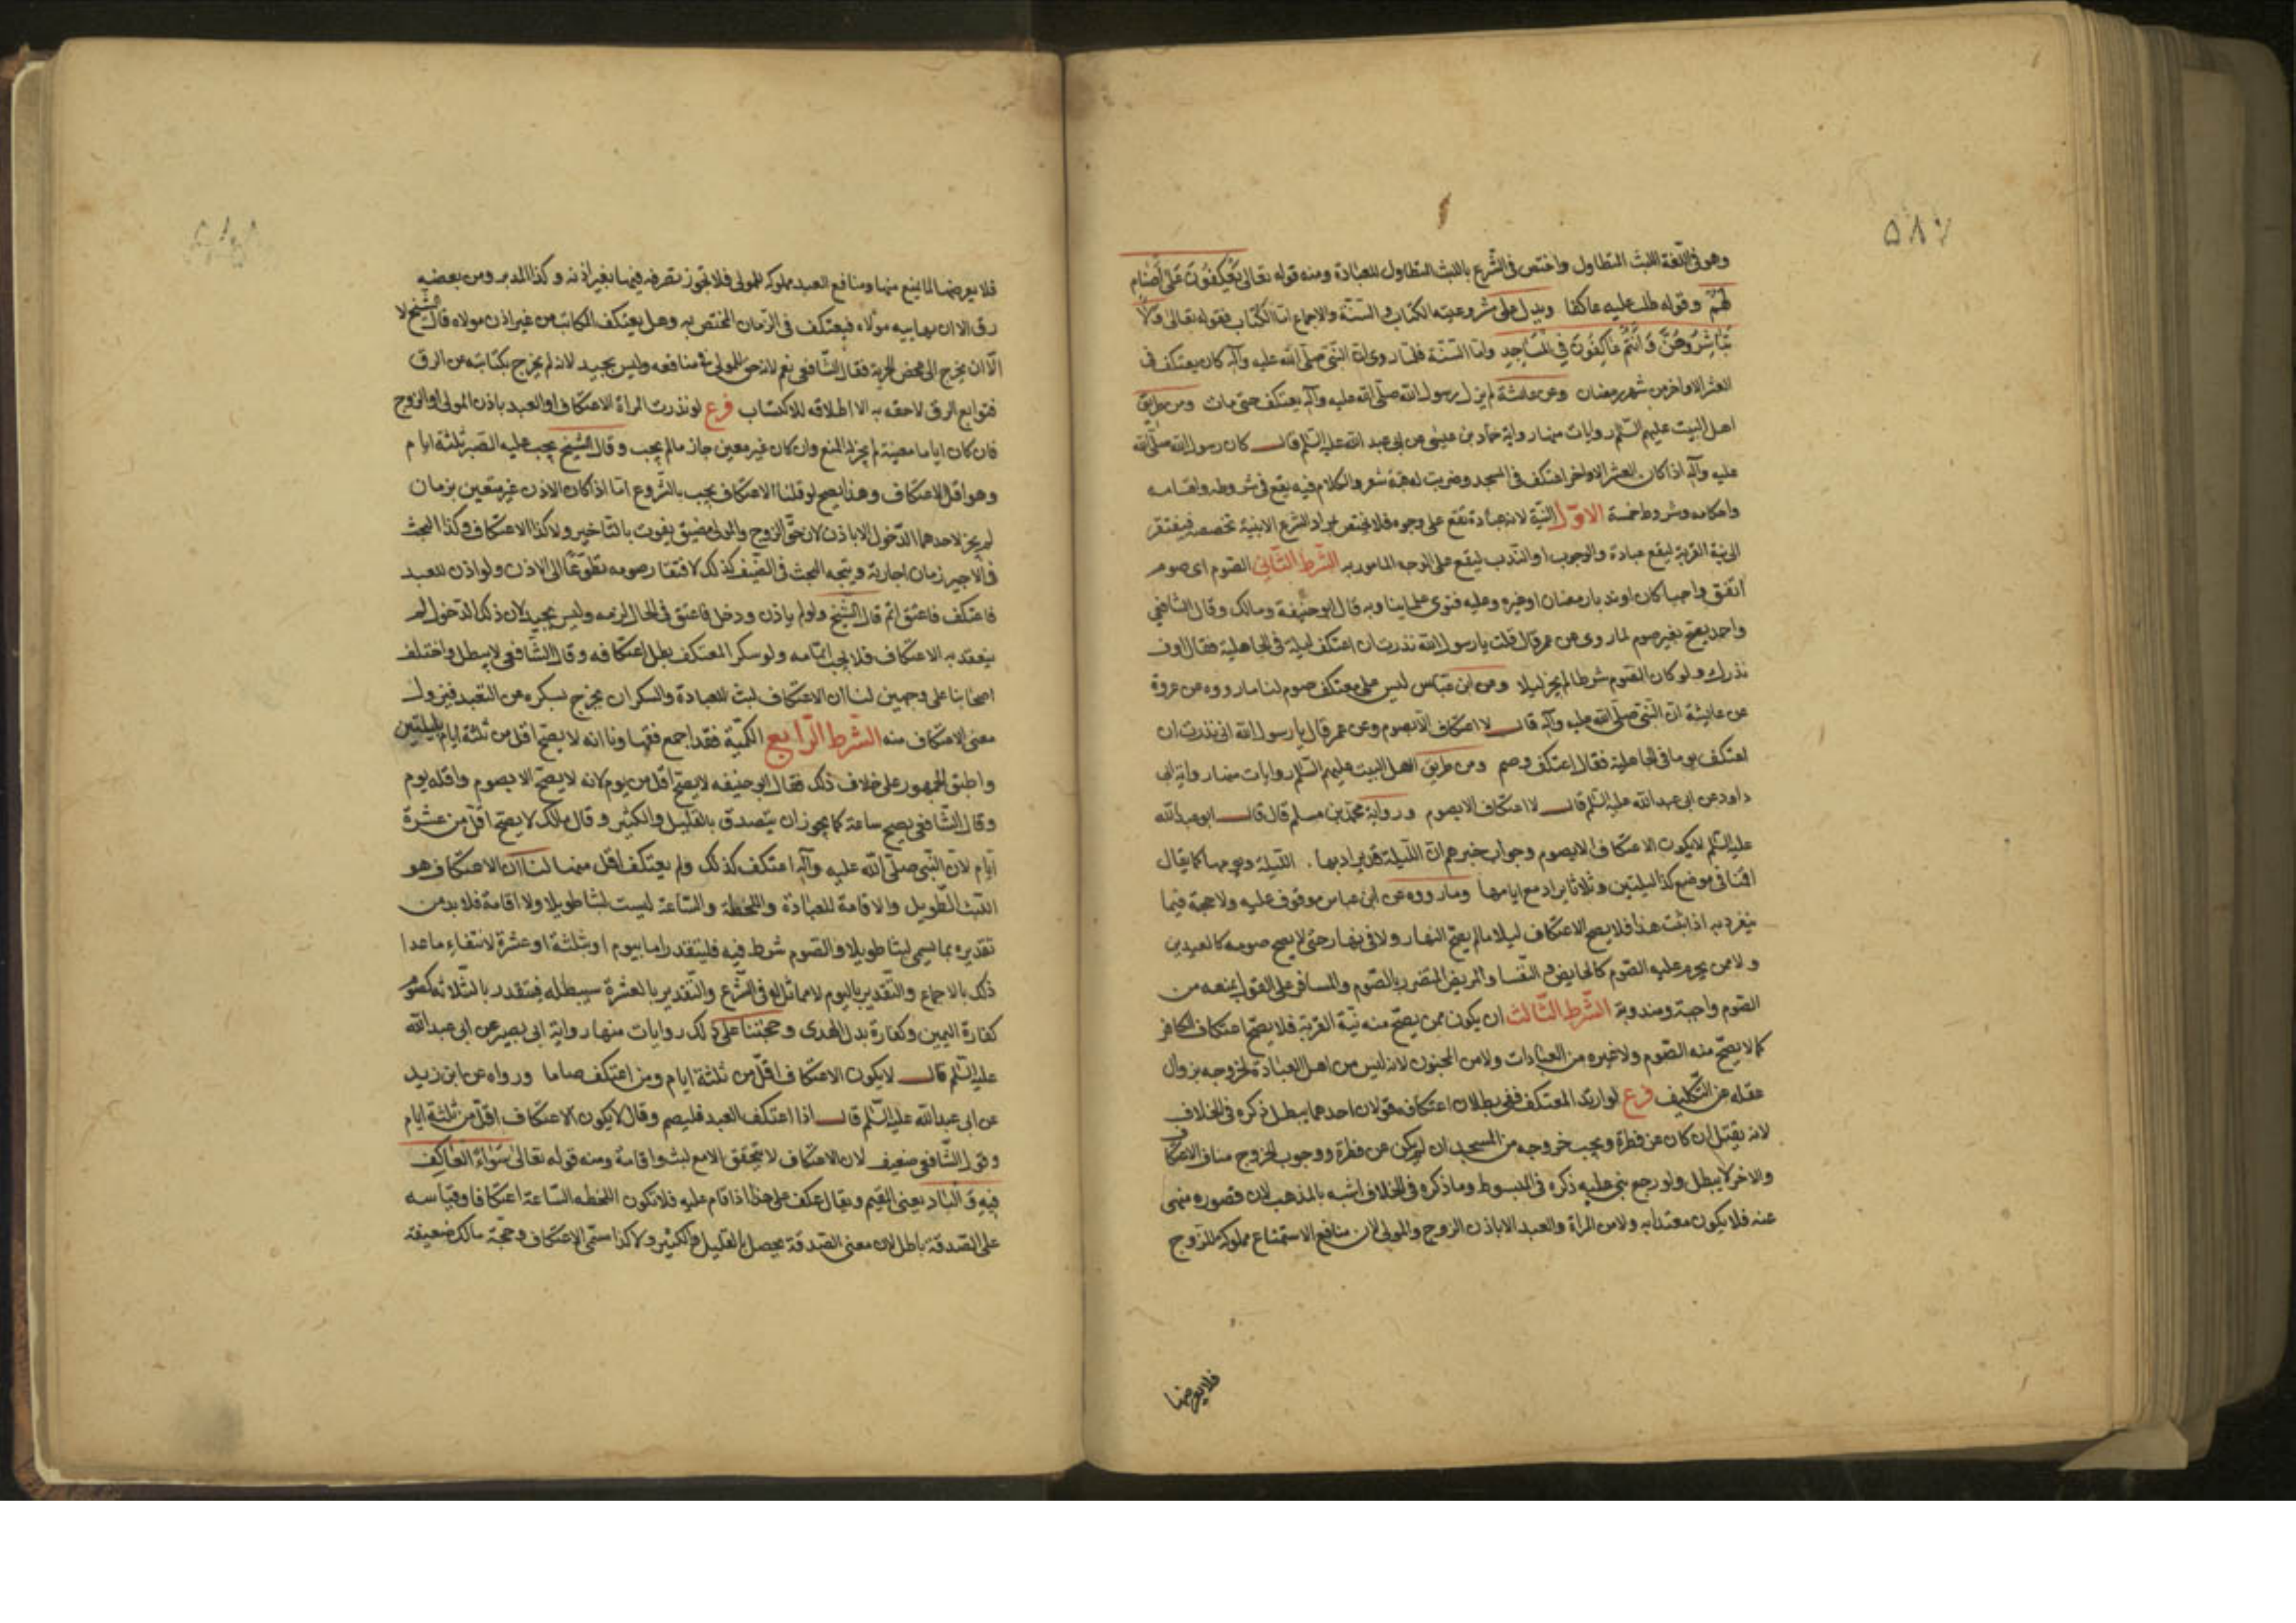 ٥٨٧
وهو فى اللّغة اللبث المتطاول واختص فى الشّرع باللبث المتطاول للعبادة ومنه قوله تعالى يَعْكِفُونَ عَلى أَصْنامٍ
لَهُمْ وقوله ظلت عليه عاكفا ويدل على شروعيته الكتاب والسنّة والاجماع امّا الكتاب فقوله تعالى ولا
تُبَاشِرُوهُنَّ وَأَنْتُمْ عَاكِفُونَ فِي الْمَسَاجِدِ وامّا السنّة فلما روى ان النّبى صلّى الله عليه وآله كان يعتكف فى
العشر الاواخر من شهر رمضان وعن عائشة لم يزل رسول الله صلّى الله عليه وآله يعتكف حتى مات ومن طريق
اهل البيت عليهم السّلم روايات منها رواية حماد بن عيسى عن ابى عبد الله عليه السّلم قال كان رسول الله صلّى الله
عليه وآله اذا كان العشر الاواخر اعتكف فى المسجد وضربت له قبّة شعر والكلام فيه يقع فى شروطه واقسامه
واحكامه وشروطه خمسة الاوّل النيّة لانه عبادة تقع على وجوه فلا يختص بمراد الشرع الا بنية تخصصه فيفتقر
الى نية القربة ليقع عبادة والوجوب او الندب ليقع على الوجه المامور به الشّرط الثّانى الصّوم اى صوم
اتّفق واجبا كان او ندبا رمضان او غيره وعليه فتوى علماينا وبه قال ابو حنيفة ومالك وقال الشافعى
واحمد يصح بغير صوم لما روى عن عمر قال قلت يا رسول الله نذرت ان اعتكف ليلة فى الجاهلية فقال اوف
نذرك ولو كان الصّوم شرطا لم يجز ليلا وعن ابن عبّاس ليس على معتكف صوم لنا ما رووه عن عروة
عن عايشة ان النّبى صلّى الله عليه وآله قال لا اعتكاف الّا بصوم وعن عمر قال يا رسول الله انى نذرت ان
اعتكف يوما فى الجاهلية فقال اعتكف وصم ومن طريق اهل البيت عليهم السّلم روايات منها رواية ابى
داود عن ابى عبد الله عليه السّلم قال لا اعتكاف الا بصوم ورواية محمّد بن مسلم قال قال ابو عبد الله
عليه السّلم لا يكون الاعتكاف الا بصوم وجواب خبرهم ان اللّيلة قد يراد بها . الليلة ويومها كما يقال
اقمنا فى موضع كذا ليلتين وثلاثا يراد مع ايامها وما رووه عن ابن عباس موقوف عليه ولا حجة فيما
ينفرد به اذا ثبت هذا فلا يصح الاعتكاف ليلا ما لم يصم النهار ولا فى نهار حتى لا يصح صومه كالعيدين
ولا ممن يحرم عليه الصّوم كالحايض والنّفسا والمريض المتضرر بالصّوم والمسافر على القول بمنعه من
الصّوم واجبة ومندوبة الشّرط الثّالث ان يكون ممن يصحّ منه نيّة القربة فلا يصحّ اعتكاف الكافر
كما لا يصحّ منه الصّوم ولا غيره من العبادات ولا من المجنون لانه ليس من اهل العبادة لخروجه بزوال
عقله عن التّكليف فرع لو ارتد المعتكف ففى بطلان اعتكافه قولان احدهما يبطل ذكره فى الخلاف
لانه يقتل ان كان عن فطرة ويجب خروجه من المسجد ان لم يكن عن فطرة ووجوب الخروج مناف الاعتكاف
والاخر لا يبطل ولو رجع بنى عليه ذكره فى المبسوط وما ذكره فى الخلاف اشبه بالمذهب لان قصوره منهى
عنه فلا يكون معتدا به ولا من المراة والعبد الا باذن الزوج والمولى لان منافع الاستمتاع مملوكة للزّوج
فلا يعرضها
فلا يعرضها لما يمنع منها ومنافع العبد مملوكه للمولى فلا تجوز تصرفه فيها بغير اذنه وكذا المدبر ومن بعضه
رق الا ان يهابيه مولاه فيعتكف فى الزّمان المختص به وهل يعتكف المكاتب من غير اذن مولاه قال الشّيخ لا
الّا ان يخرج الى محض الحرية فقال الشّافعى نعم لانه حق للمولى فى منافعه وليس بجيد لانه لم يخرج بكتابته عن الرق
فتوابع الرق لاحقه به الا اطلاقه للاكتساب فرع لو نذرت المراة الاعتكاف او العبد باذن المولى او الزوج
فان كان اياما معينة لم يجز له المنع وان كان غير معين جاز ما لم يجب وقال الشّيخ يجب عليه الصّبر ثلثة ايام
وهو اقل الاعتكاف وهذا يصح لو قلنا الاعتكاف يجب بالشّروع امّا اذا كان الاذن غير متعين بزمان
لم يجز لاحدهما الدّخول الا باذن لان حقّ الزوج والمولى مضيق يفوت بالتّاخير ولا كذا الاعتكاف وكذا البحث
فى الاجير زمان اجارته ويتجه البحث فى الضّيف كذلك لافتقار صومه تطوّعًا الى الاذن ولو اذن للعبد
فاعتكف فاعتق اتم قال الشّيخ ولو لم ياذن ودخل فاعتق فى الحال لزمه وليس بجيد لان ذلك الدّخول لم
ينعقد به الاعتكاف فلا يجب اتمامه ولو سكر المعتكف بطل اعتكافه وقال الشّافعى لا يبطل واختلف
اصحابنا على وجهين لنا ان الاعتكاف لبث للعبادة والسكران يخرج بسكره عن التعبد فيزول
معنى الاعتكاف منه الشّرط الرّابع الكميّة فقد اجمع فقهاونا انه لا يصحّ اقل من ثلثة ايام بليلتين
واطبق الجمهور على خلاف ذلك فقال ابو حنيفه لا يصحّ اقل من يوم لانه لا يصحّ الا بصوم واقله يوم
وقال الشّافعى يصح ساعة كما يجوز ان يتصدق بالقليل والكثير وقال مالك لا يصحّ اقلّ من عشرة
ايّام لان النّبى صلّى الله عليه وآله اعتكف كذلك ولم يعتكف اقل منها لنا ان الاعتكاف هو
اللّبث الطّويل والاقامة للعبادة واللحظة والسّاعة ليست لبثا طويلا ولا اقامة فلا بد من
تقديره بما يسمى لبثا طويلا والصّوم شرط فيه فليتقدر اما بيوم او بثلثة او عشرة لانتفاء ما عدا
ذلك بالاجماع والتّقدير باليوم لا مماثل له فى الشّرع والتّقدير بالعشرة سيبطله فيتقدر بالثّلاثة كصوم
كفارة اليمين وكفارة بدل الهدى وحجتنا على ذلك روايات منها رواية ابى بصير عن ابى عبد الله
عليه السّلم قال لا يكون الاعتكاف اقلّ من ثلثة ايام ومن اعتكف صاما ورواه عن ابن زيد
عن ابى عبد الله عليه السّلم قال اذا اعتكف العبد فليصم وقال لا يكون الاعتكاف اقلّ من ثلثة ايام
وقول الشّافعى ضعيف لان الاعتكاف لا يتحقق الا مع لبث واقامة ومنه قوله تعالى سَوَاءً الْعَاكِفُ
فِيهِ وَالْبَادِ يعنى المقيم ويقال عكف على هذا اذا اقام عليه فلا تكون اللحظه السّاعة اعتكافا وقياسه
على الصّدقة باطل لان معنى الصّدقة يحصل بالقليل والكثير ولا كذا سمّى الاعتكاف وحجّة مالك ضعيفة